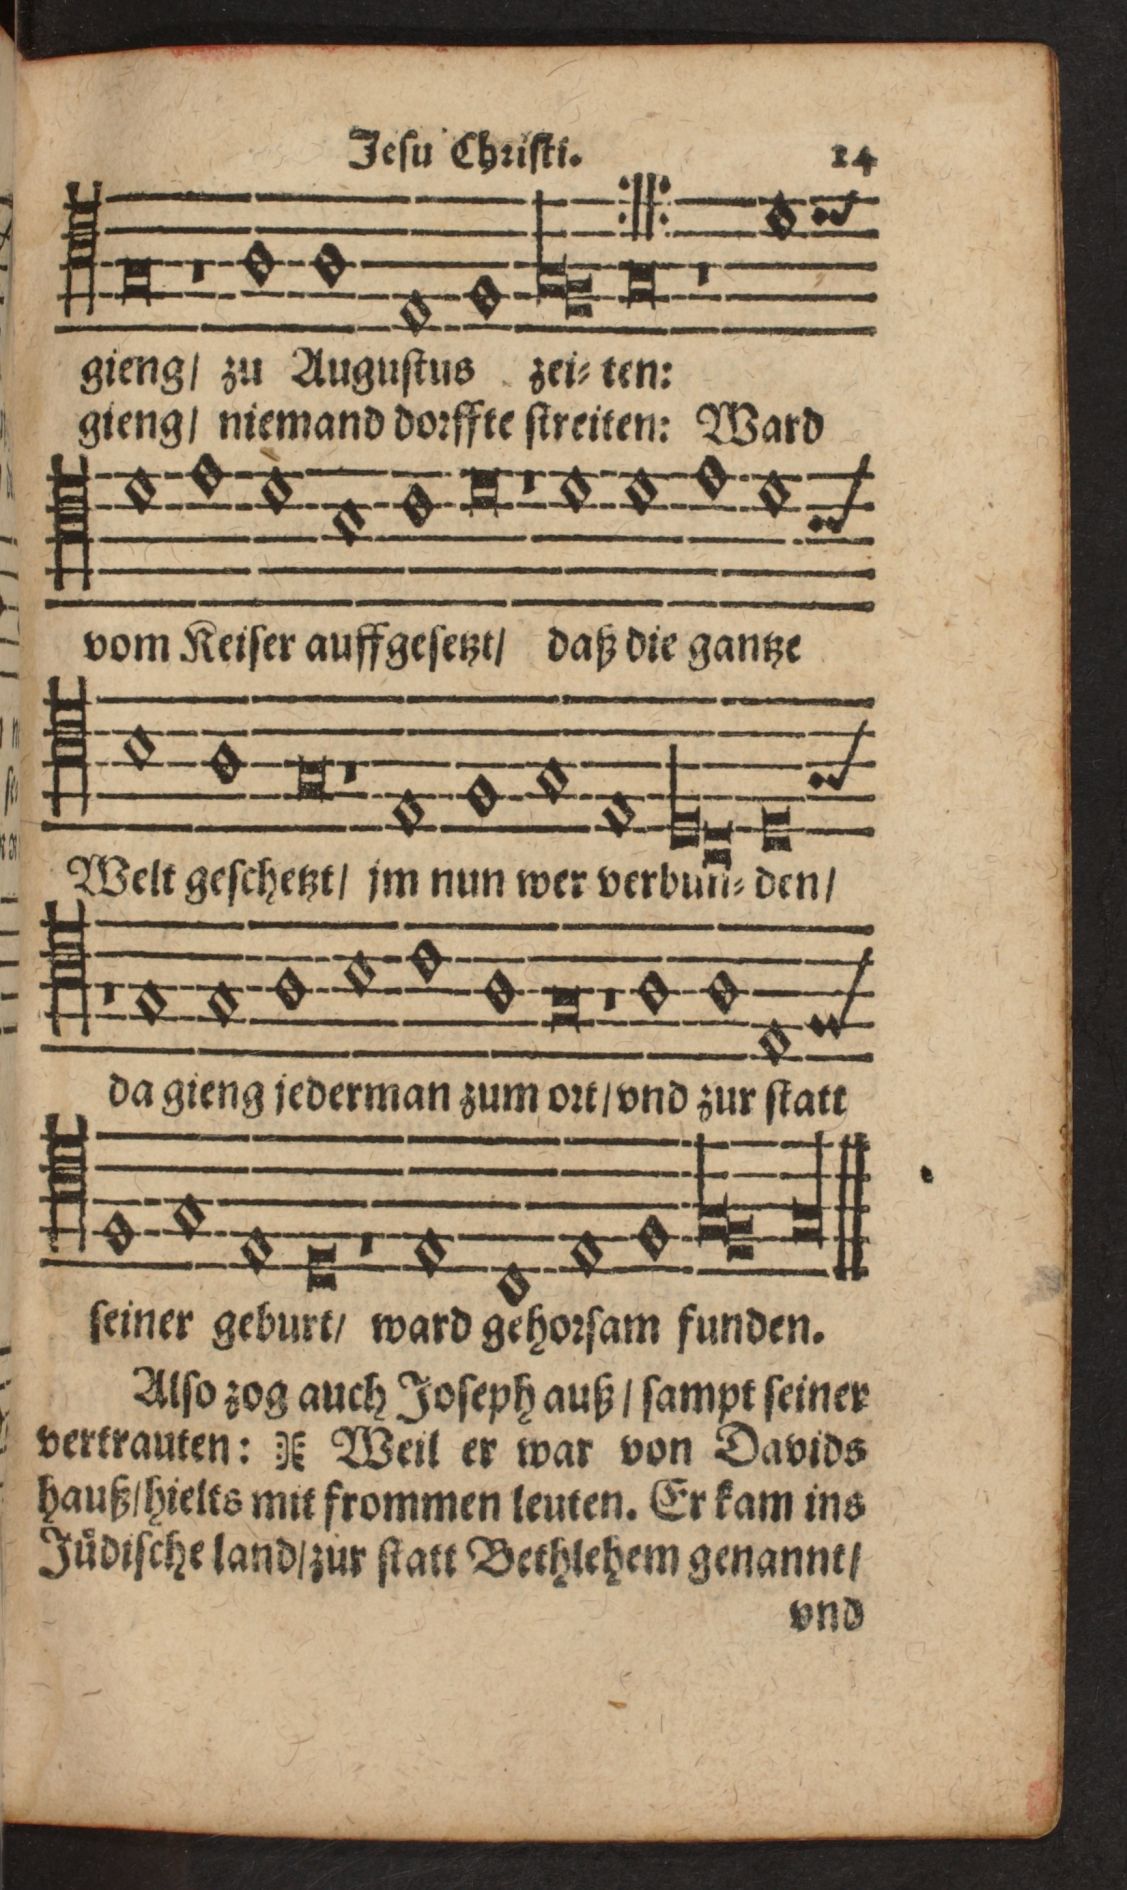 Jesu Christi. 14
gieng/ zu Augustus zei⸗ ten:
gieng/ niemand dorffte streiten: Ward
vom Keiser auffgesetzt/ daß die gantze
Welt geschetzt/ jm nun wer verbun⸗ den/
da gieng jederman zum ort/ vnd zur statt
seiner geburt/ ward gehorsam funden.
Also zog auch Joseph auß/ sampt seiner
vertrauten: Weil er war von Davids
hauß/ hielts mit frommen leuten. Er kam ins
Jüdische land/ zur statt Bethlehem genannt/
vnd